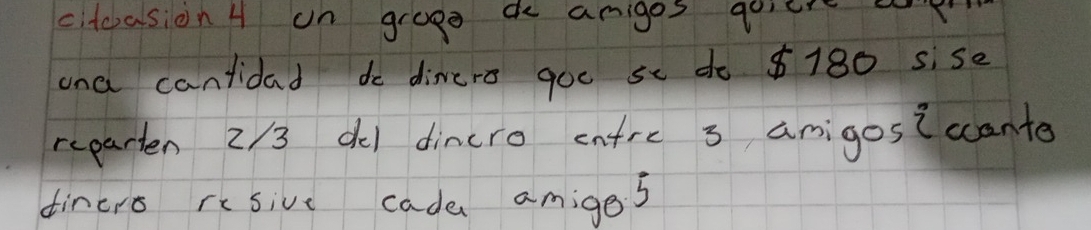 citoasión 4 un grupo de amigos quiere
una cantidad de dinero que se de $180 si se
reparten 2/3 del dinero entre 3 amigos ¿cuanto
dinero resive cada amigo?